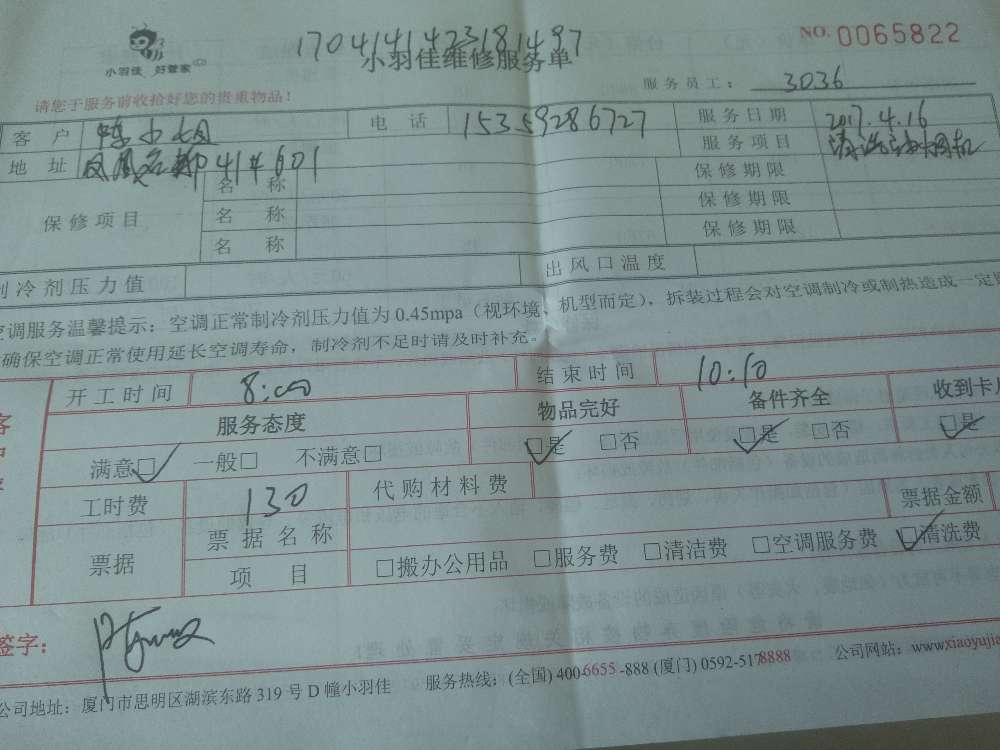 小羽佳 好管家
1704141423181497
NO. 0065822
小羽佳维修服务单
请您于服务前收拾好您的贵重物品！
服务员工： 3036
客 户 陈小姐 电 话 15359286727 服务日期 2017.4.16
地 址 凤凰名都41#601 服务项目 清洗油烟机
保修项目 名 称 保修期限
名 称 保修期限
名 称 保修期限
制冷剂压力值 出风口温度
空调服务温馨提示：空调正常制冷剂压力值为 0.45mpa（视环境、机型而定），拆装过程会对空调制冷或制热造成一定
确保空调正常使用延长空调寿命，制冷剂不足时请及时补充。
开工时间 8:00 结束时间 10:10
服务态度 物品完好 备件齐全 收到卡
满意□ 一般□ 不满意□ □是 □否 □是 □否 □是
工时费 130 代购材料费
票据 票据名称 票据金额
项 目 □搬办公用品 □服务费 □清洁费 □空调服务费 □清洗费
签字：
公司地址：厦门市思明区湖滨东路 319 号 D 幢小羽佳 服务热线：(全国) 400-6655-888 (厦门) 0592-5178888 公司网站：www.xiaoyujia